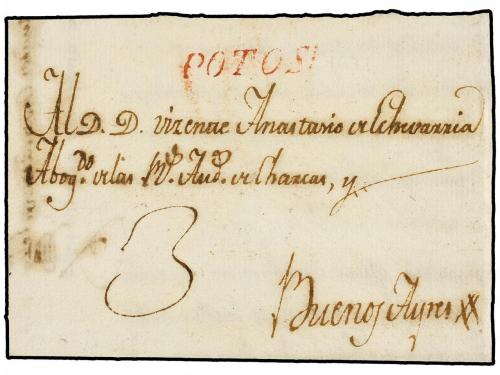 POTOSI
Al D. D. Vizente Anastasio de Echevarria
Abog.do de las R.s Aud.s de Charcas, y
3
Buenos Ayres